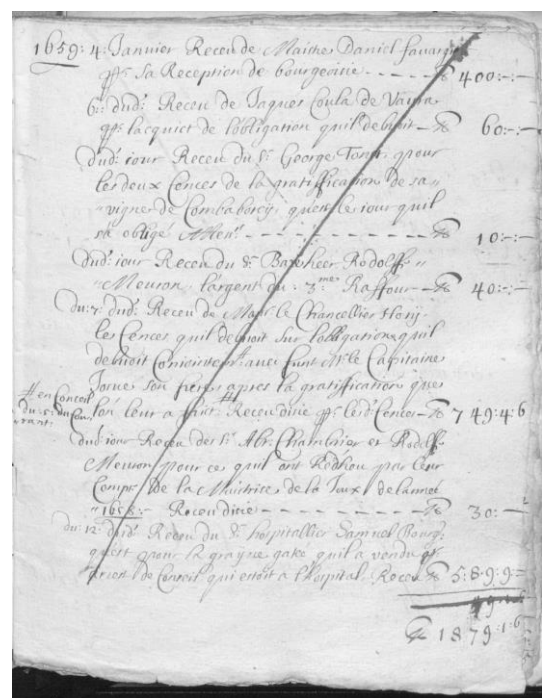 1659: 4: Janvier Receu de Maistre Daniel favarg
pr. Sa Reception de bourgeoisie - - - - - 400:-:-
6: dud: Receu de Jaques Coula de
pr: lacquict de lobligation quil debvoit - 60:-:-
Dud: iour Receu du Sr. George pour
les deux Cences de la gratiffication de sa
vigne de Combaborcy, le iour quil
sa obligé - - - - - - - - 10:-:-
Dud: iour Receu du Sr. Rodolff
Meuron, largent du: 3me Raffour - 40:-:-
Du: 7: dud: Receu de le Chancellier
les Cences quil debvoit Sur lobligation quil
debvoit avec funt Mr le Capitaine
Son frere apres la gratiffication que
lon leur a faict # Receu dire pr. lesd: Cences - 749:4:6
# en Conseil
du: 5: du Cou
rant.
dud: iour Receu des Srs Abr: Chambrier et Rodolff
Meuron pour ce quil ont par leur
Compt de la Maitrice de la de lannee
1658: Receu dire - - - - - - - 30:-
du: 12: dud: Receu du Sr. hospitallier Samuel Bourg
quert pour la grayne gate quil a vendu pr
de Conseil qui estoit a lhospital, Receu 589:9:
1879:1:6